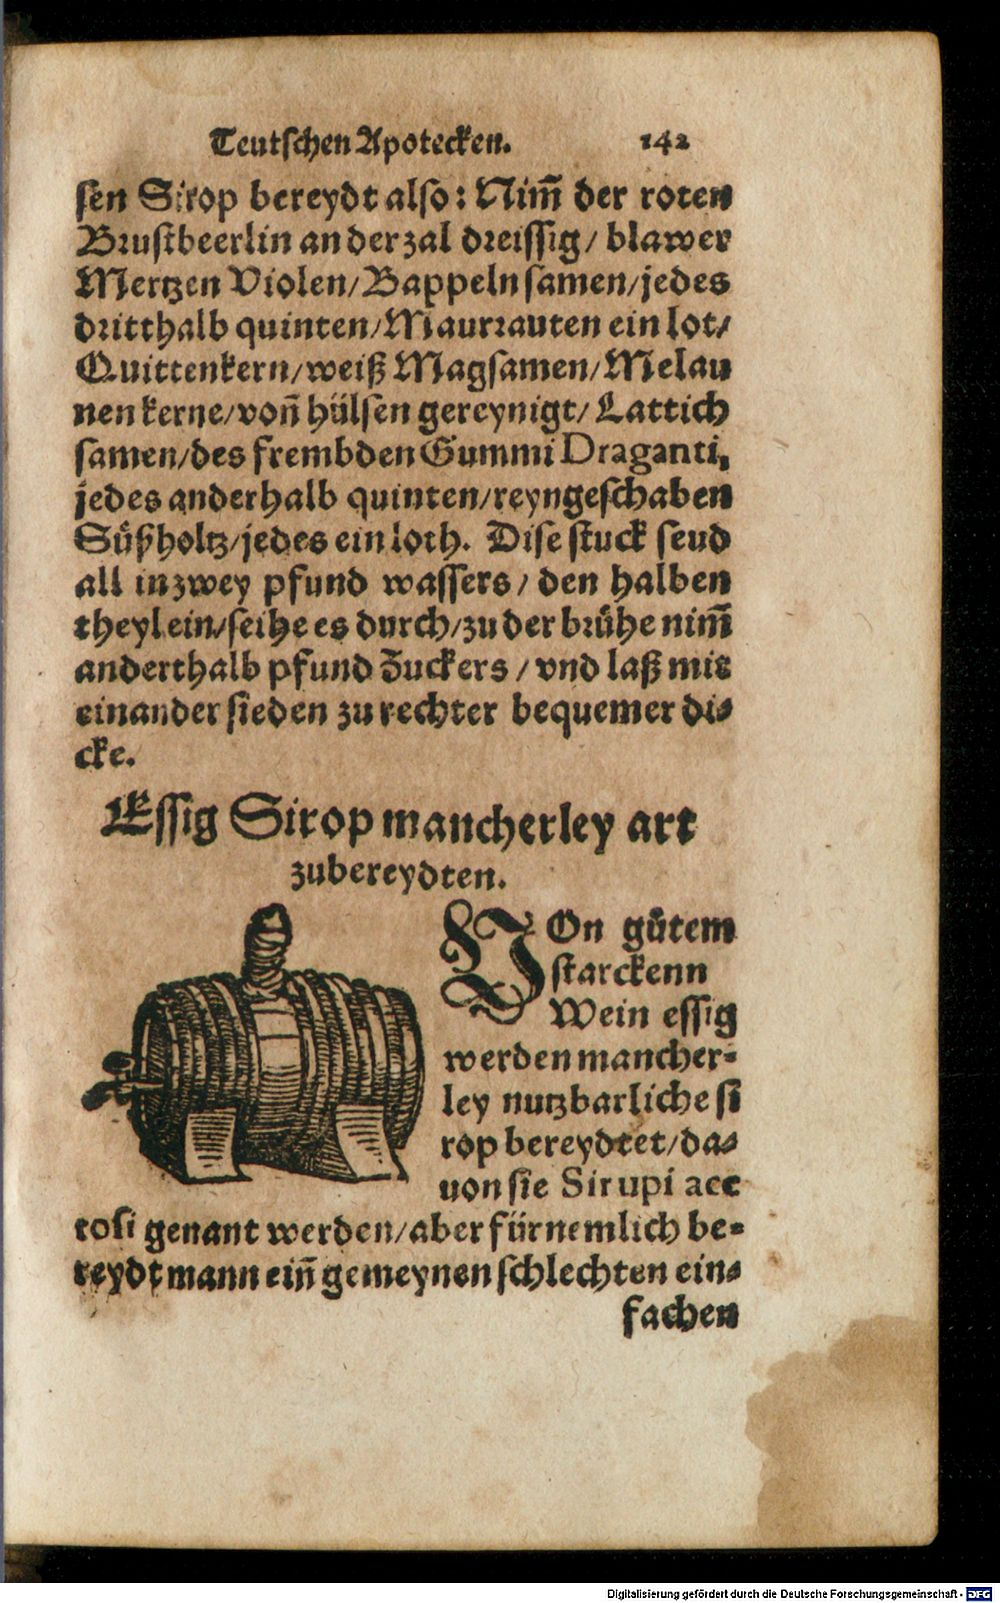 Teutschen Apotecken. 142
sen Sirop bereydt also: Nim̃ der roten
Brustbeerlin an der zal dreissig/ blawer
Mertzen Violen/Bappeln samen/jedes
dritthalb quinten/Maurrauten ein lot/
Quittenkern/weiß Magsamen/Melau
nen kerne/von̄ hülsen gereynigt/ Lattich
samen/des frembden Gummi Draganti,
jedes anderhalb quinten/reyngeschaben
Süßholtz/jedes ein loth. Dise stuck seud
all in zwey pfund wassers/ den halben
theyl ein/seihe es durch/zu der brühe nim̃
anderthalb pfund Zuckers/vnd laß mit
einander sieden zu rechter bequemer di⸗
cke.
Essig Sirop mancherley art
zubereydten.
VOn gůtem
starckenn
Wein essig
werden mancher⸗
ley nutzbarliche si
rop bereydtet/da⸗
uon sie Sirupi ace
tosi genant werden/aber fürnemlich be⸗
reydt mann ein̄ gemeynen schlechten ein⸗
fachen
Digitalisierung gefördert durch die Deutsche Forschungsgemeinschaft - DFG